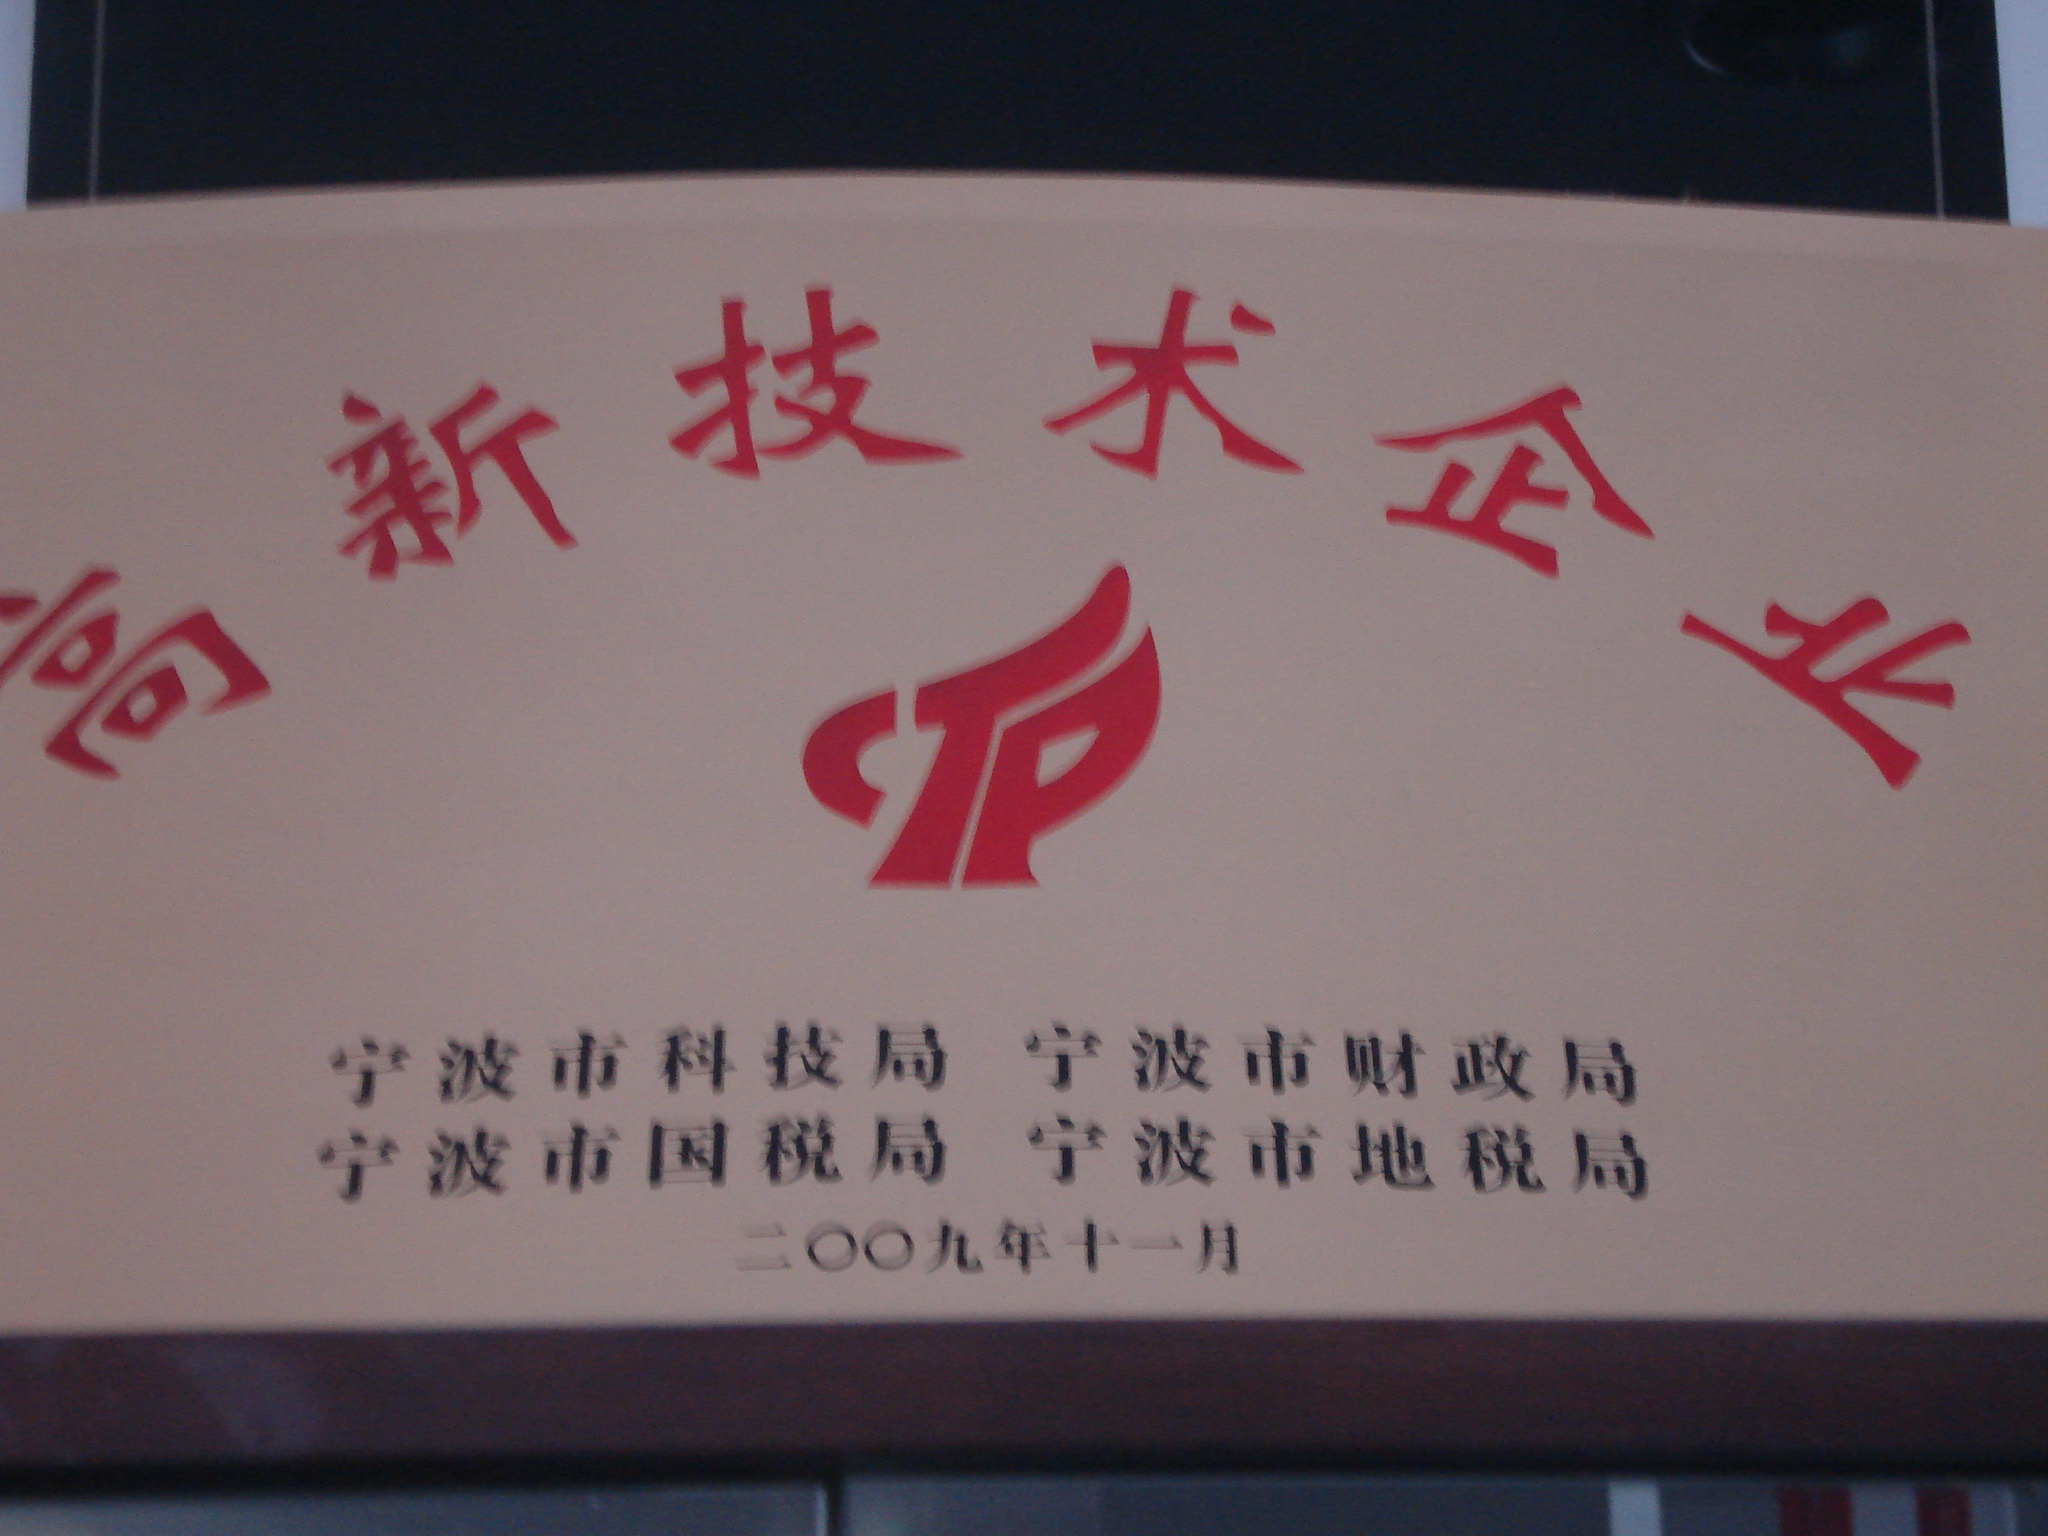 高新技术企业
CTP
宁波市科技局 宁波市财政局
宁波市国税局 宁波市地税局
二〇〇九年十一月